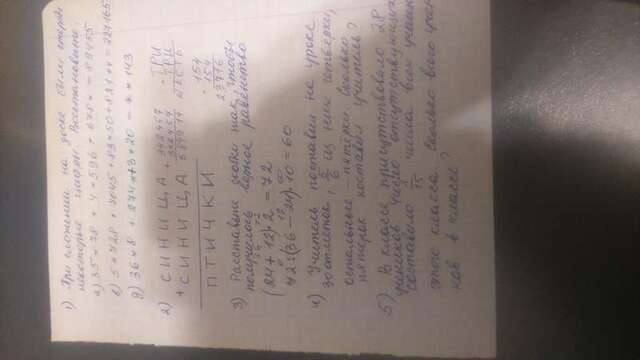 1) При сложении на доске были стёрты
некоторые цифры. Восстановите.
а) 35*78 + 4*596 + 678* = 89455
в) 5*728 + *045 + 83*50 + 821** = 227165
д) 36*8 + 274* + 3*20 = **143
2) СИНИЦА + 342457 ТРИ
+ СИНИЦА 342457 ТРИ
ПТИЧКИ ШЕСТЬ
154
154
23716
3) Расставьте скобки так, чтобы
получилось верное равенство
36 72
(24+12)·2 = 72
72:(36-24)·10 = 60
4) Учитель поставил на уроке
30 отметок, 5/6 из них четвёрки,
остальные – пятёрки. Сколько
пятёрок поставил учитель?
5) В классе присутствовало 28
учеников. Число отсутствующих
составило 1/15 числа всех учеников
этого класса. Сколько всего учени-
ков в классе?